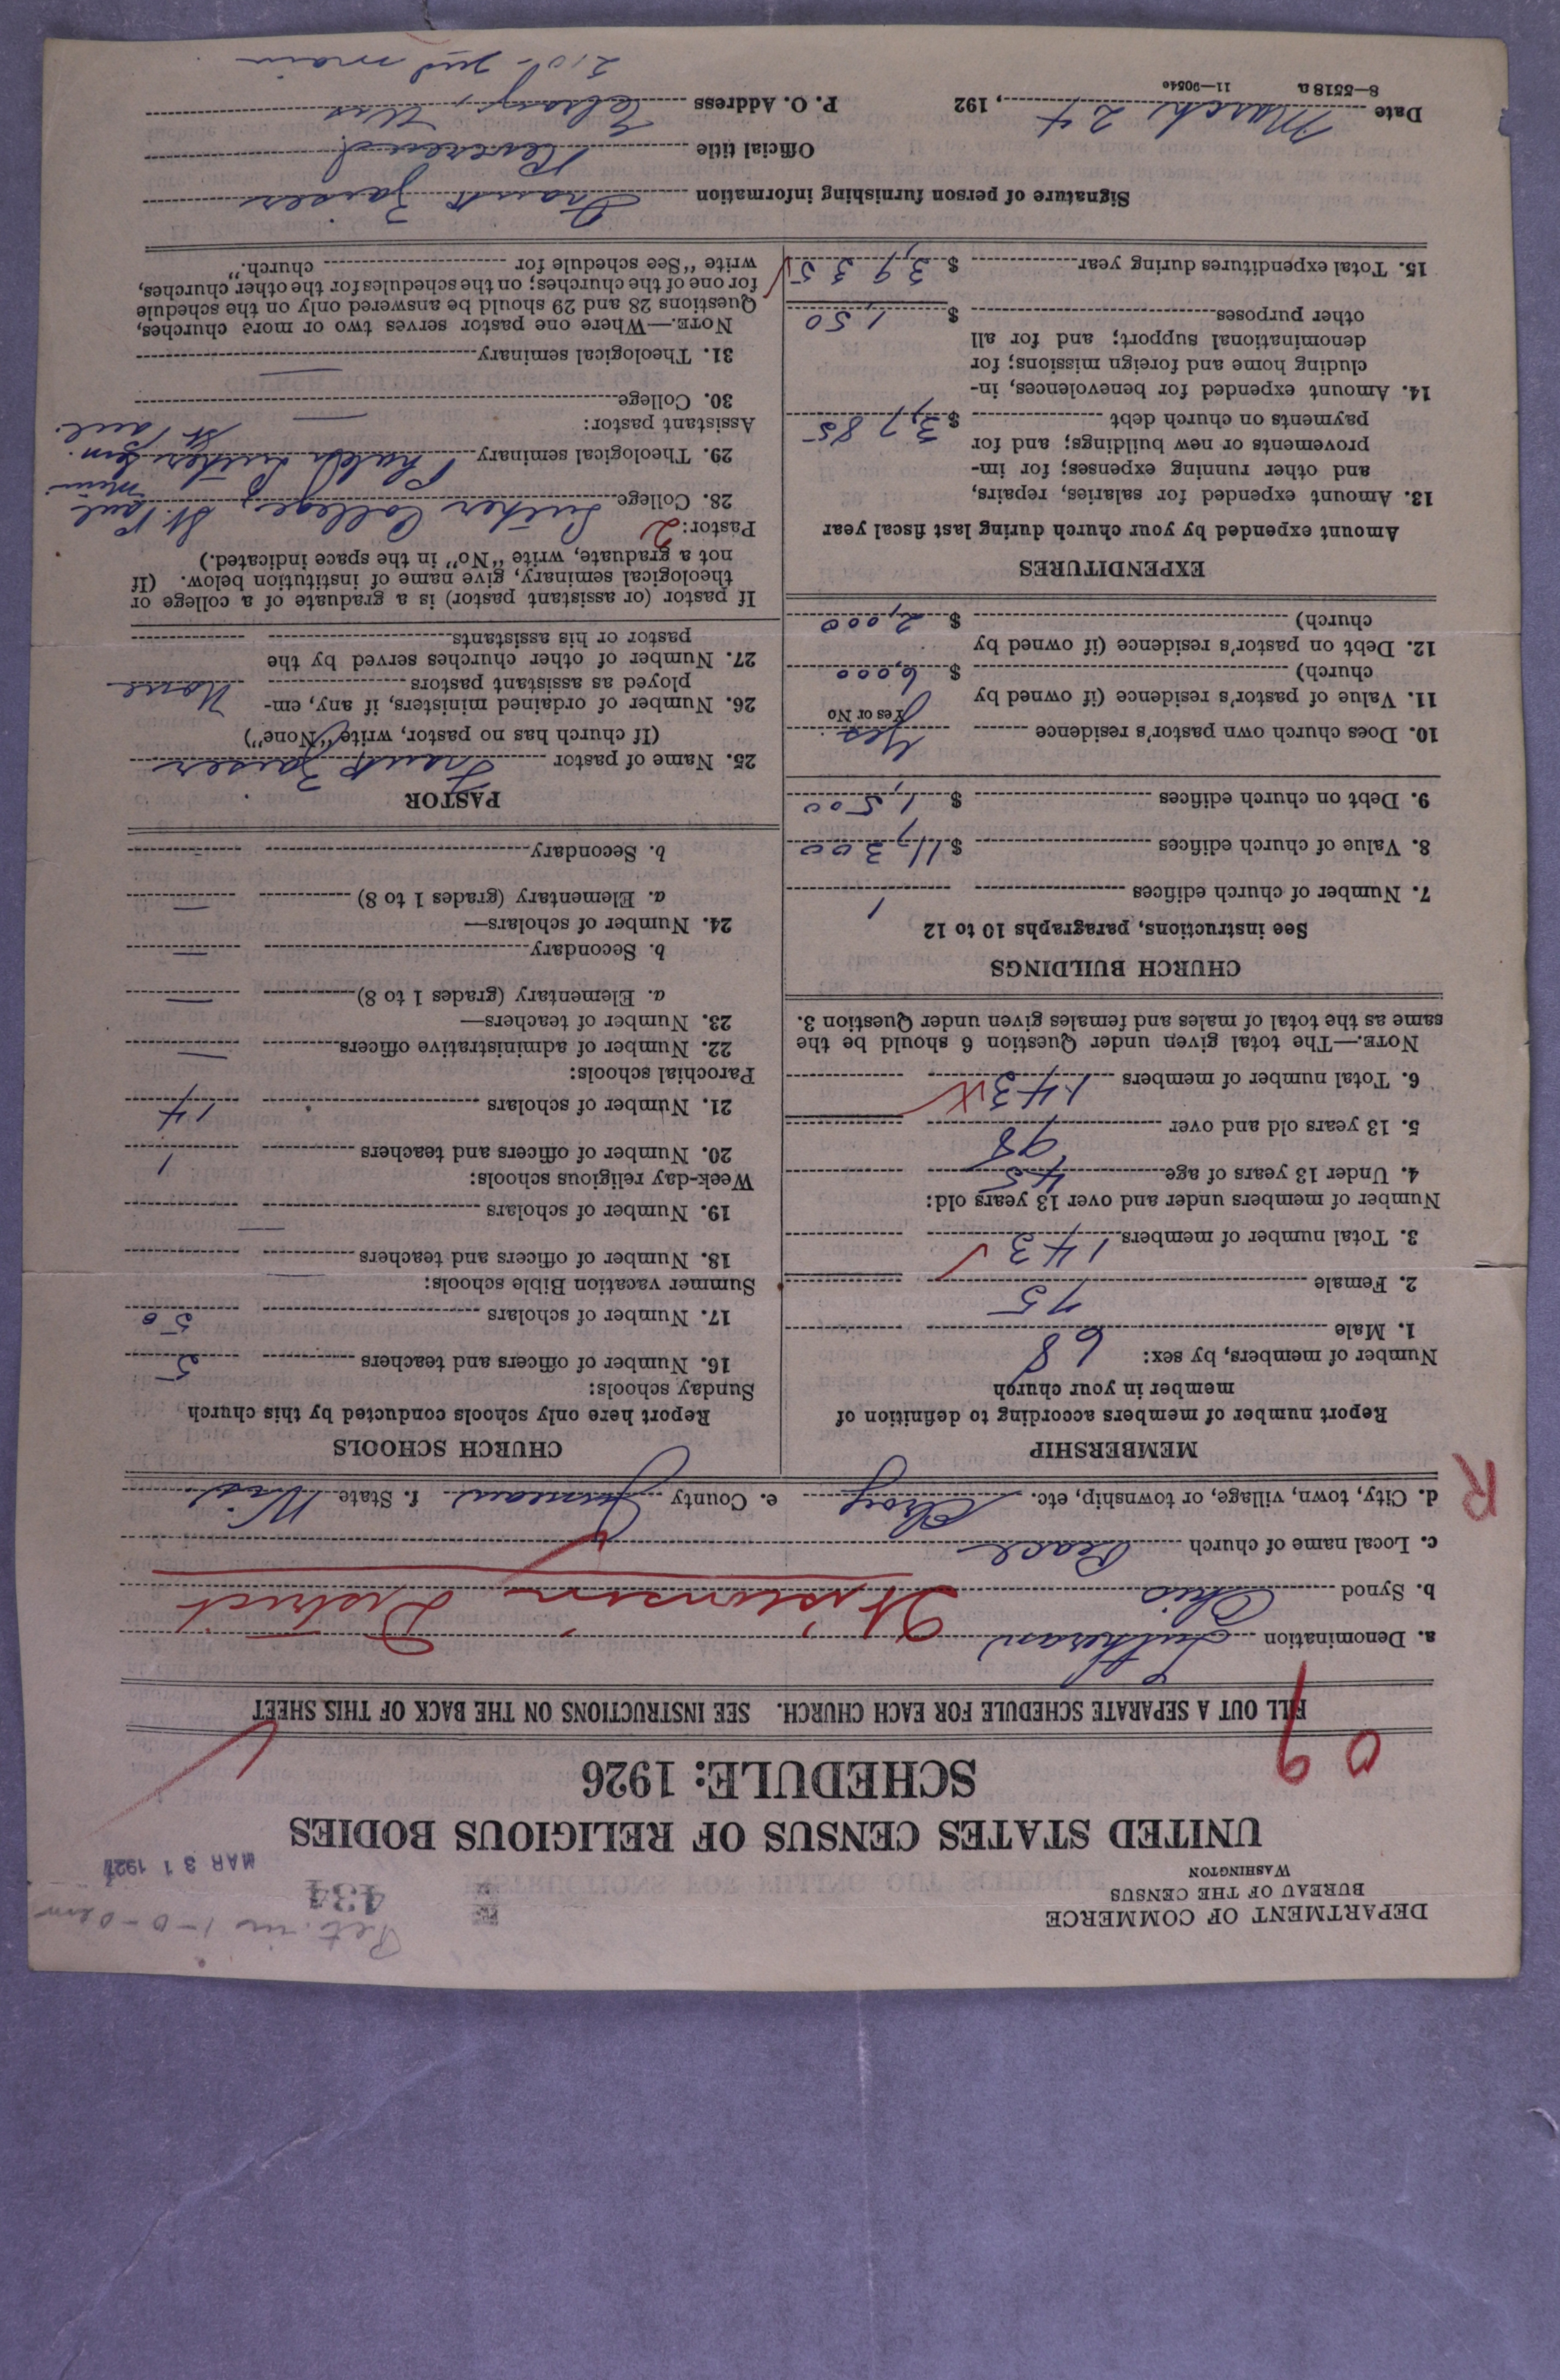 DEPARTMENT OF COMMERCE
BUREAU OF THE CENSUS
WASHINGTON
434
MAR 31 1927
UNITED STATES CENSUS OF RELIGIOUS BODIES
SCHEDULE: 1926
09
FILL OUT A SEPARATE SCHEDULE FOR EACH CHURCH. SEE INSTRUCTIONS ON THE BACK OF THIS SHEET
a. Denomination Lutheran
b. Synod Ohio Wisconsin District
c. Local name of church Peace
d. City, town, village, or township, etc. Elroy e. County Juneau f. State Wis
R
MEMBERSHIP
Report number of members according to definition of
member in your church
Number of members, by sex:
1. Male 68
2. Female 75
3. Total number of members 143
Number of members under and over 13 years old:
4. Under 13 years of age 45
5. 13 years old and over 98
6. Total number of members 143
NOTE.—The total given under Question 6 should be the
same as the total of males and females given under Question 3.
CHURCH BUILDINGS
See instructions, paragraphs 10 to 12
7. Number of church edifices 1
8. Value of church edifices $ 11,300
9. Debt on church edifices $ 1,500
10. Does church own pastor's residence Yes
Yes or No
11. Value of pastor's residence (if owned by
church) $ 6,000
12. Debt on pastor's residence (if owned by
church) $ 2,000
EXPENDITURES
Amount expended by your church during last fiscal year
13. Amount expended for salaries, repairs,
and other running expenses; for im-
provements or new buildings; and for
payments on church debt $ 3,785
14. Amount expended for benevolences, in-
cluding home and foreign missions; for
denominational support; and for all
other purposes $ 150
15. Total expenditures during year $ 3,935
CHURCH SCHOOLS
Report here only schools conducted by this church
Sunday schools:
16. Number of officers and teachers 5
17. Number of scholars 50
Summer vacation Bible schools:
18. Number of officers and teachers —
19. Number of scholars —
Week-day religious schools:
20. Number of officers and teachers 1
21. Number of scholars 14
Parochial schools:
22. Number of administrative officers —
23. Number of teachers—
a. Elementary (grades 1 to 8) —
b. Secondary —
24. Number of scholars—
a. Elementary (grades 1 to 8) —
b. Secondary —
PASTOR
25. Name of pastor Frank Zaiser
(If church has no pastor, write "None")
26. Number of ordained ministers, if any, em-
ployed as assistant pastors None
27. Number of other churches served by the
pastor or his assistants
If pastor (or assistant pastor) is a graduate of a college or
theological seminary, give name of institution below. (If
not a graduate, write "No" in the space indicated.)
Pastor: 2
28. College Luther College, St. Paul Minn
29. Theological seminary Luther Sem. St. Paul
Assistant pastor:
30. College —
31. Theological seminary —
NOTE.—Where one pastor serves two or more churches,
Questions 28 and 29 should be answered only on the schedule
for one of the churches; on the schedules for the other churches,
write "See schedule for church."
Signature of person furnishing information Frank Zaiser
Official title Reverend
Date March 24, 192 P. O. Address Elroy, Wis
8—5518a 11—9054c